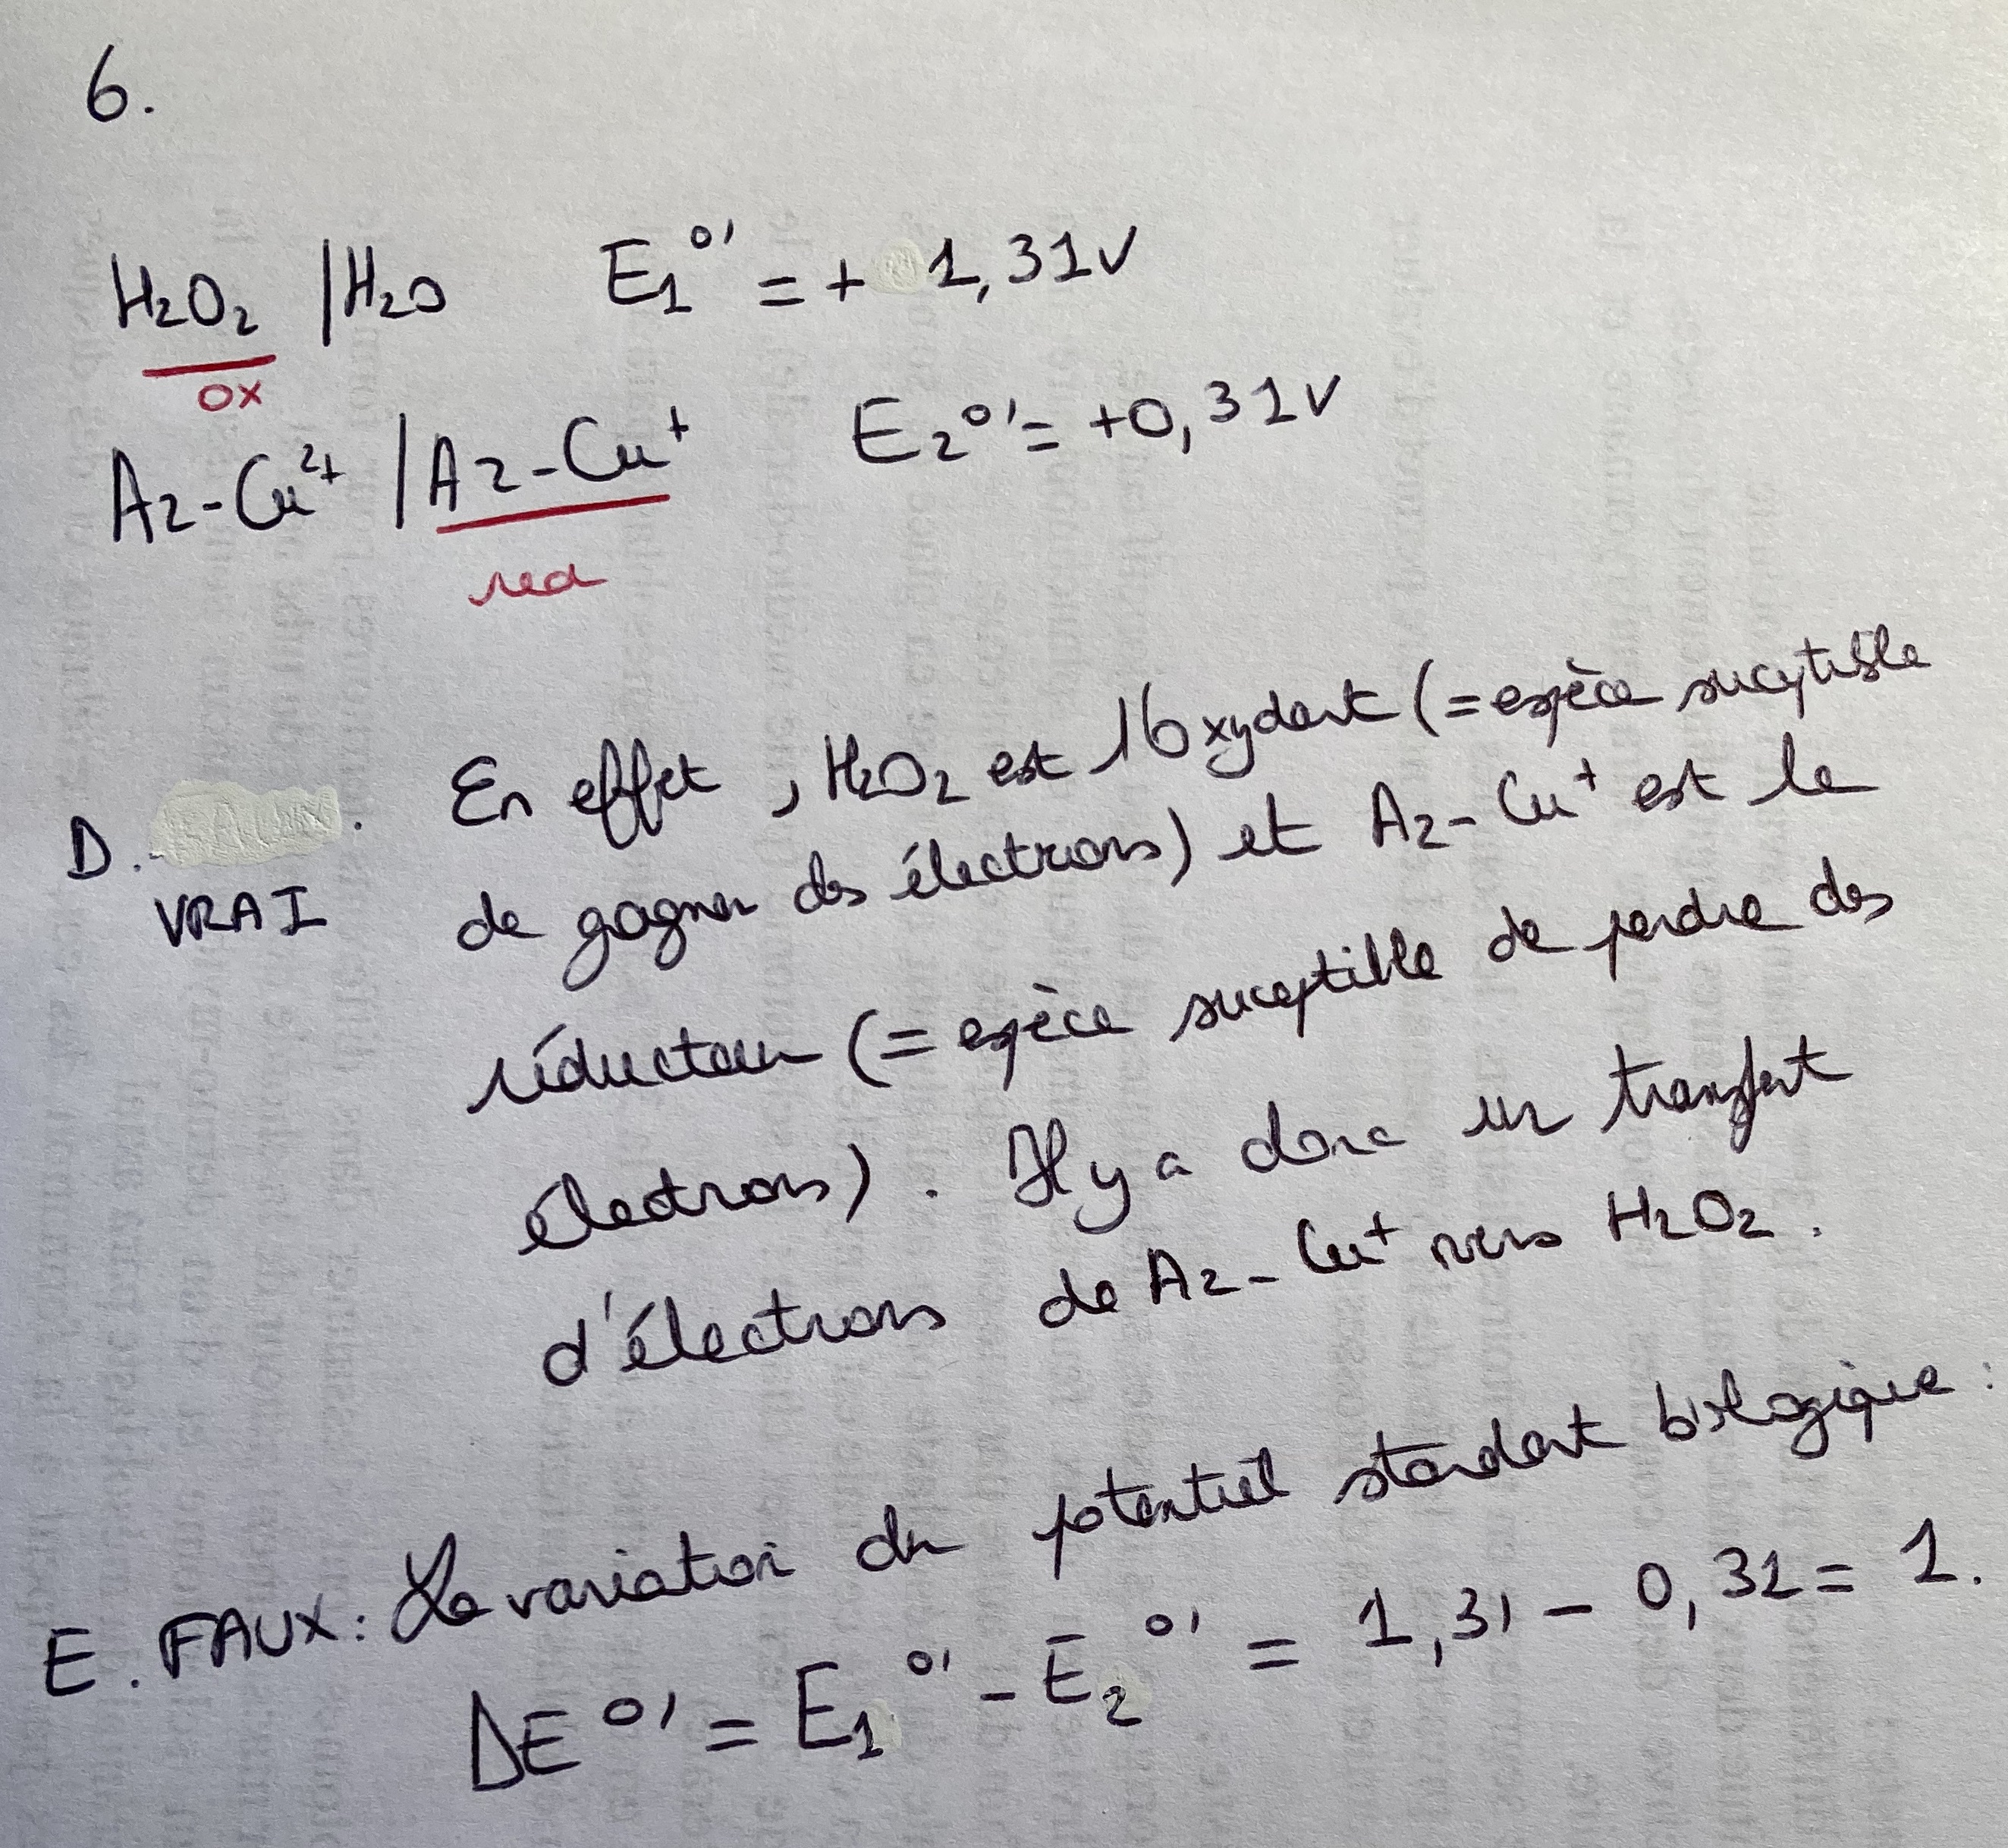 6.
H₂O₂ /H₂O E₁°' = + 1,31V
ox
Az-Cu²⁺ /Az-Cu⁺ E₂°' = +0,31V
red
D. VRAI . En effet, H₂O₂ est l'oxydant (= espèce suceptible
de gagner des électrons) et Az-Cu⁺ est le
réducteur (= espèce suceptible de perdre des
électrons). Il y a donc un transfert
d'électrons de Az-Cu⁺ vers H₂O₂.
E. FAUX: La variation du potentiel standart biologique :
ΔE°' = E₁°' - E₂°' = 1,31 - 0,31 = 1.